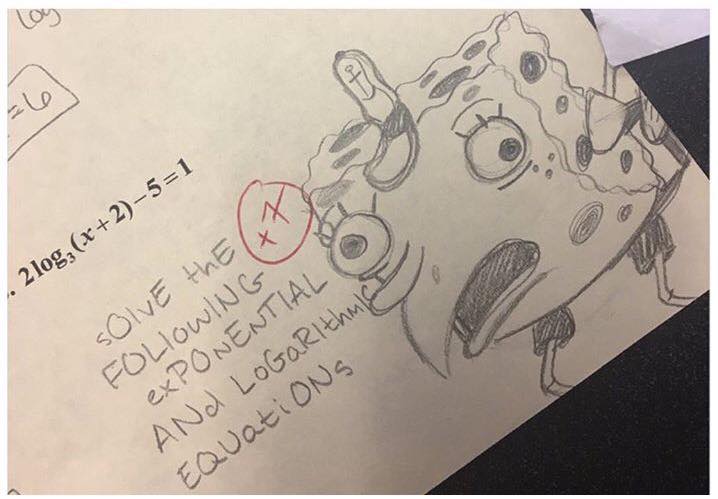 log
=6
. 2log₃(x+2)-5=1
x7
sOlvE thE
FOLloWING
exPONENTIAL
ANd LoGaRIthmIC
EQUatiONs